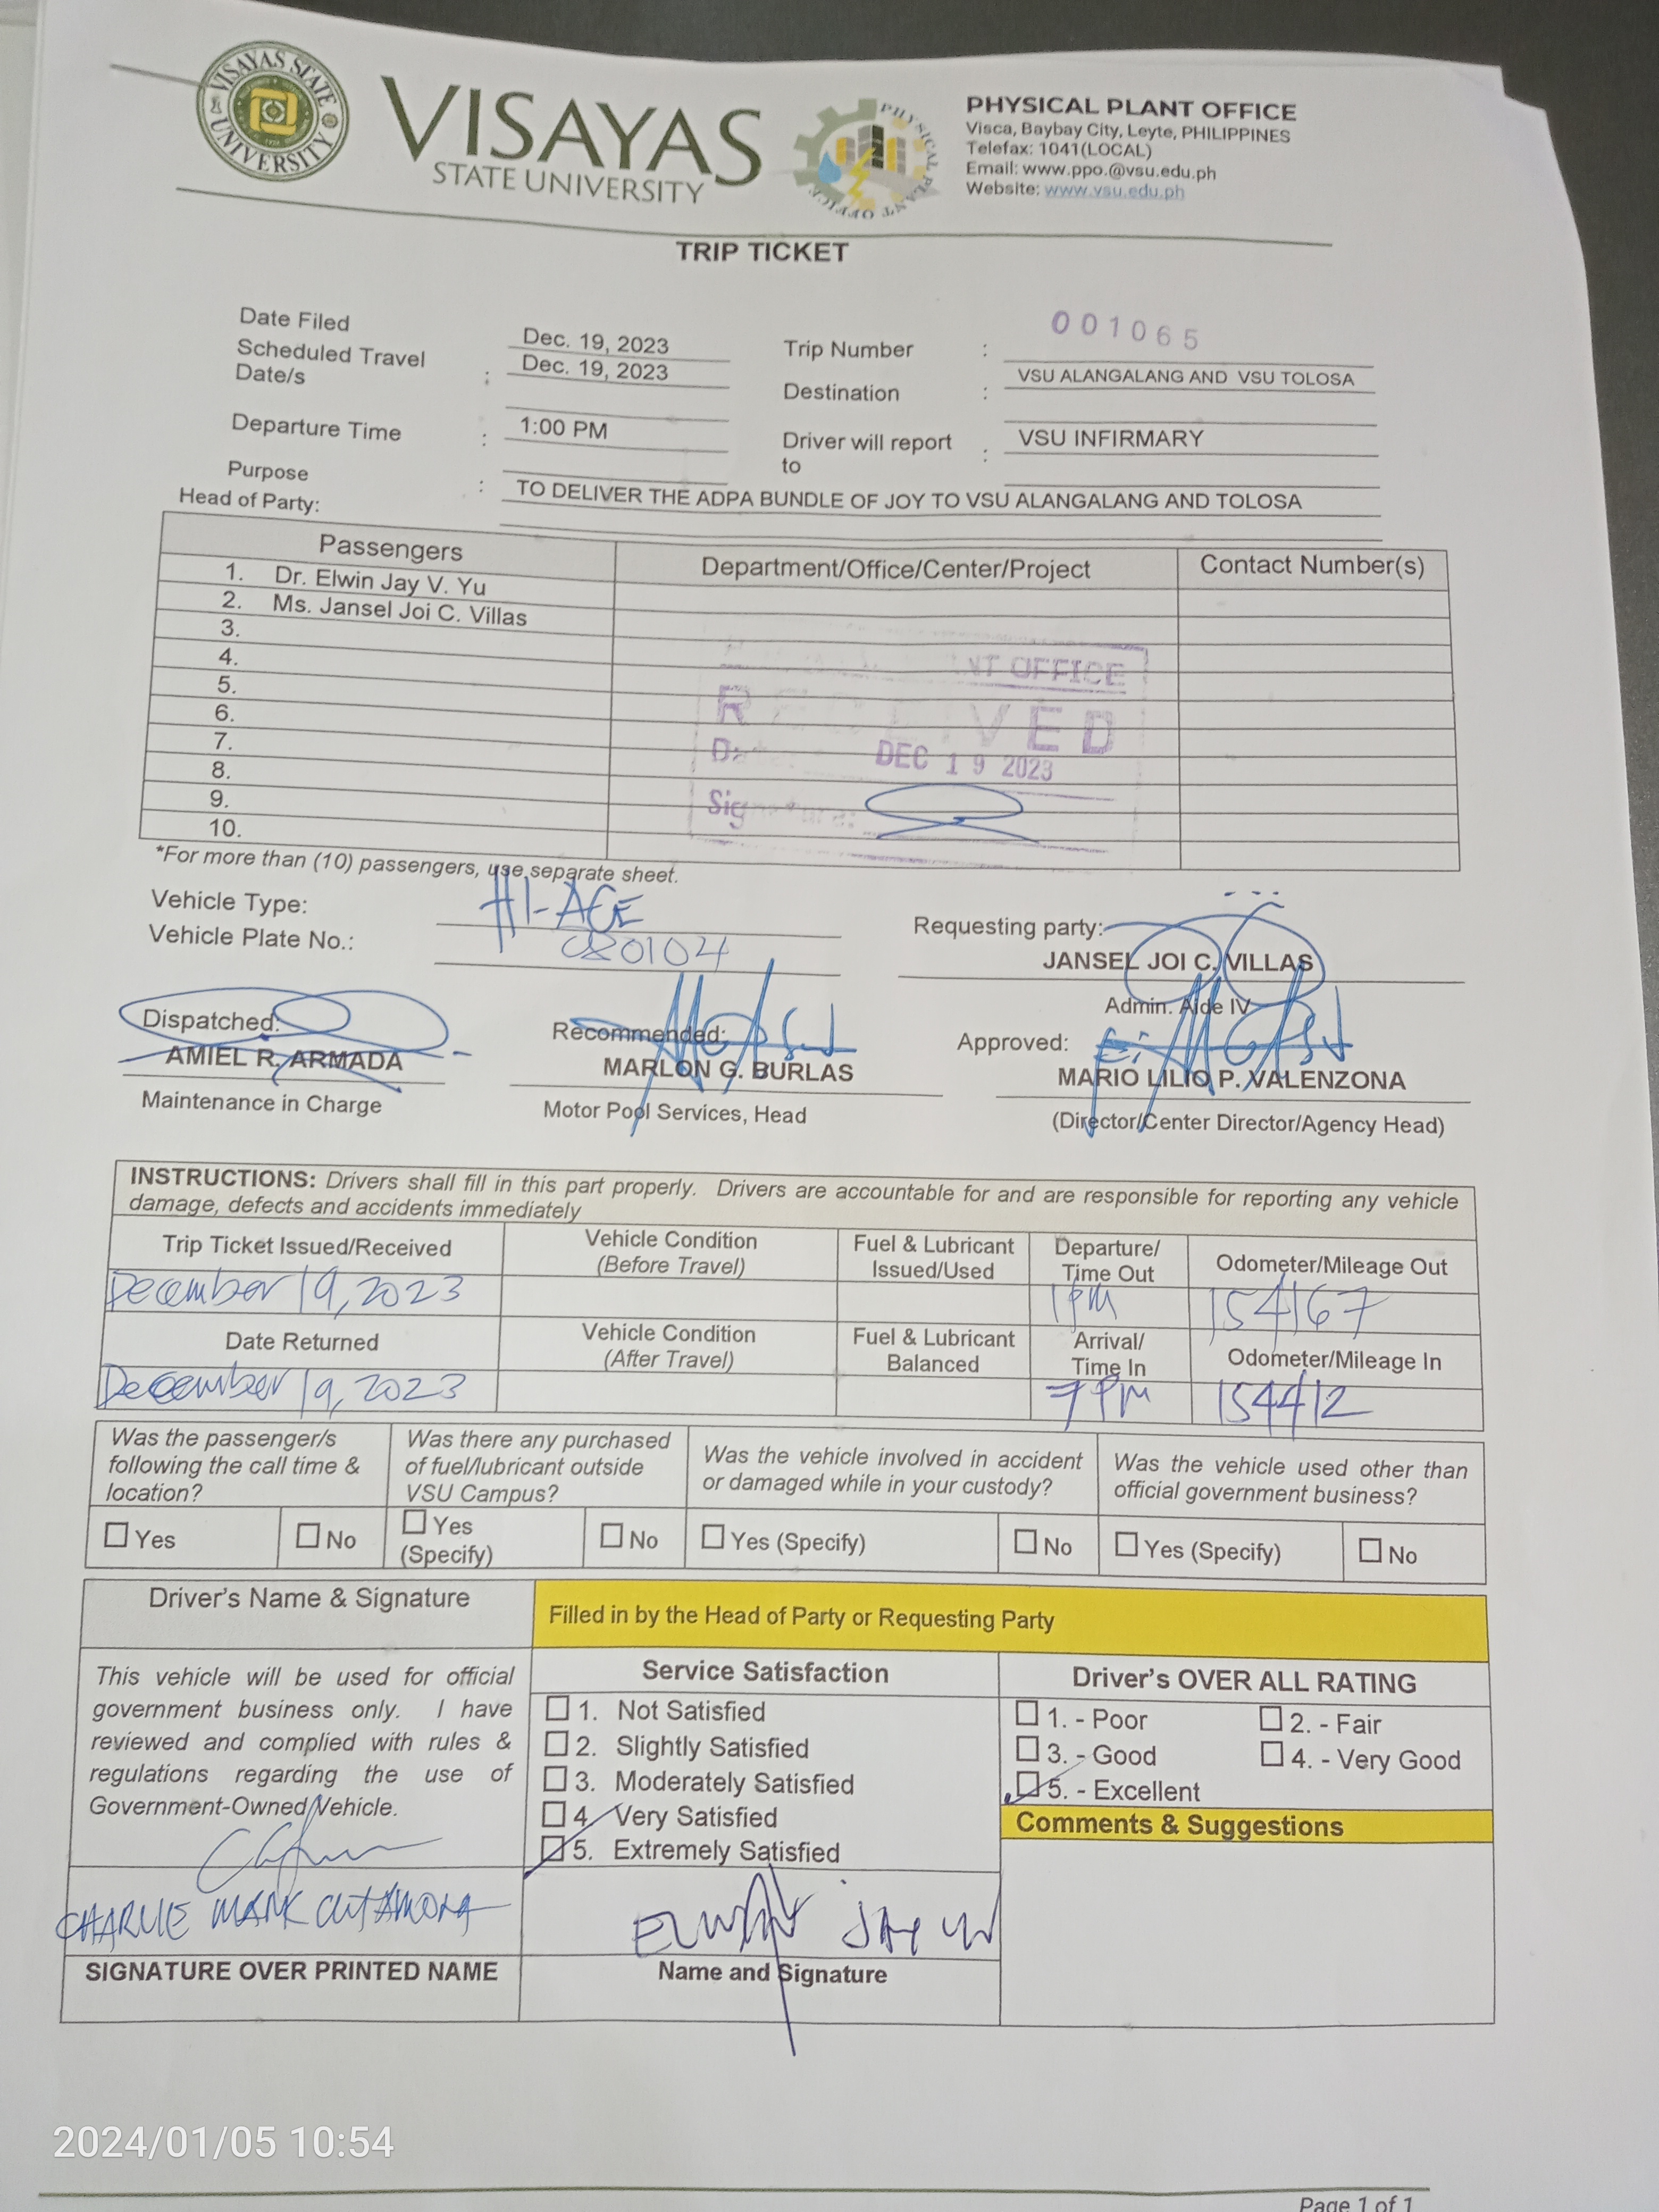 VISAYAS STATE UNIVERSITY
VISAYAS
STATE UNIVERSITY
PHYSICAL PLANT OFFICE
PHYSICAL PLANT OFFICE
Visca, Baybay City, Leyte, PHILIPPINES
Telefax: 1041(LOCAL)
Email: www.ppo.@vsu.edu.ph
Website: www.vsu.edu.ph
TRIP TICKET
Date Filed Dec. 19, 2023
Scheduled Travel Date/s : Dec. 19, 2023
Trip Number : 001065
Destination : VSU ALANGALANG AND VSU TOLOSA
Departure Time : 1:00 PM
Driver will report to : VSU INFIRMARY
Purpose : TO DELIVER THE ADPA BUNDLE OF JOY TO VSU ALANGALANG AND TOLOSA
Head of Party:
Passengers Department/Office/Center/Project Contact Number(s)
1. Dr. Elwin Jay V. Yu
2. Ms. Jansel Joi C. Villas
3.
4.
5.
6.
7.
8.
9.
10.
NT OFFICE
RECEIVED
Date: DEC 19 2023
Signature:
*For more than (10) passengers, use separate sheet.
Vehicle Type: HI-ACE
Vehicle Plate No.: 080104
Requesting party:
JANSEL JOI C. VILLAS
Admin. Aide IV
Dispatched:
AMIEL R. ARMADA
Maintenance in Charge
Recommended:
MARLON G. BURLAS
Motor Pool Services, Head
Approved:
MARIO LILIO P. VALENZONA
(Director/Center Director/Agency Head)
INSTRUCTIONS: Drivers shall fill in this part properly. Drivers are accountable for and are responsible for reporting any vehicle
damage, defects and accidents immediately
Trip Ticket Issued/Received Vehicle Condition (Before Travel) Fuel & Lubricant Issued/Used Departure/ Time Out Odometer/Mileage Out
December 19, 2023 1PM 154167
Date Returned Vehicle Condition (After Travel) Fuel & Lubricant Balanced Arrival/ Time In Odometer/Mileage In
December 19, 2023 7PM 154412
Was the passenger/s following the call time & location?
Was there any purchased of fuel/lubricant outside VSU Campus?
Was the vehicle involved in accident or damaged while in your custody?
Was the vehicle used other than official government business?
Yes No Yes (Specify) No Yes (Specify) No Yes (Specify) No
Driver's Name & Signature
Filled in by the Head of Party or Requesting Party
This vehicle will be used for official
government business only. I have
reviewed and complied with rules &
regulations regarding the use of
Government-Owned Vehicle.
Service Satisfaction
1. Not Satisfied
2. Slightly Satisfied
3. Moderately Satisfied
4. Very Satisfied
5. Extremely Satisfied
Driver's OVER ALL RATING
1. - Poor 2. - Fair
3. - Good 4. - Very Good
5. - Excellent
Comments & Suggestions
CHARLIE MARK
SIGNATURE OVER PRINTED NAME
ELWIN JAY YU
Name and Signature
2024/01/05 10:54
Page 1 of 1